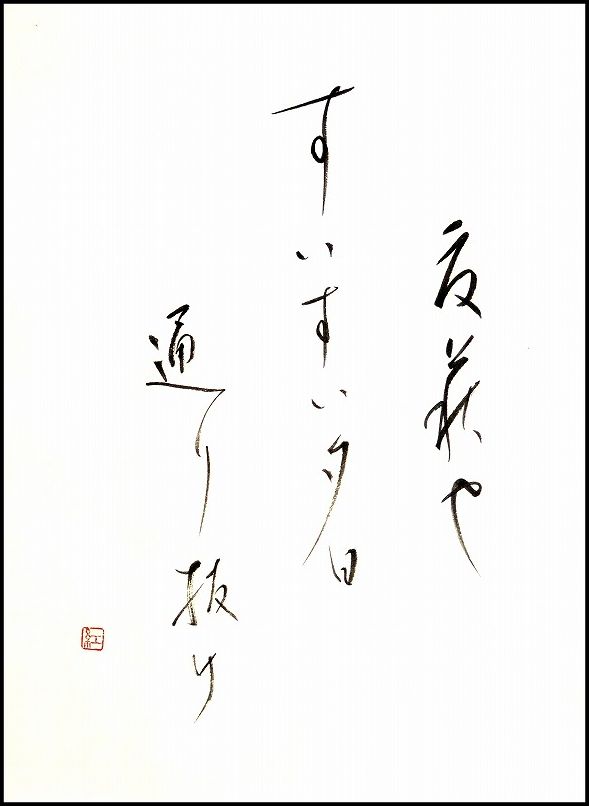 夏萩や
すいすい夕日
通り抜け
紅